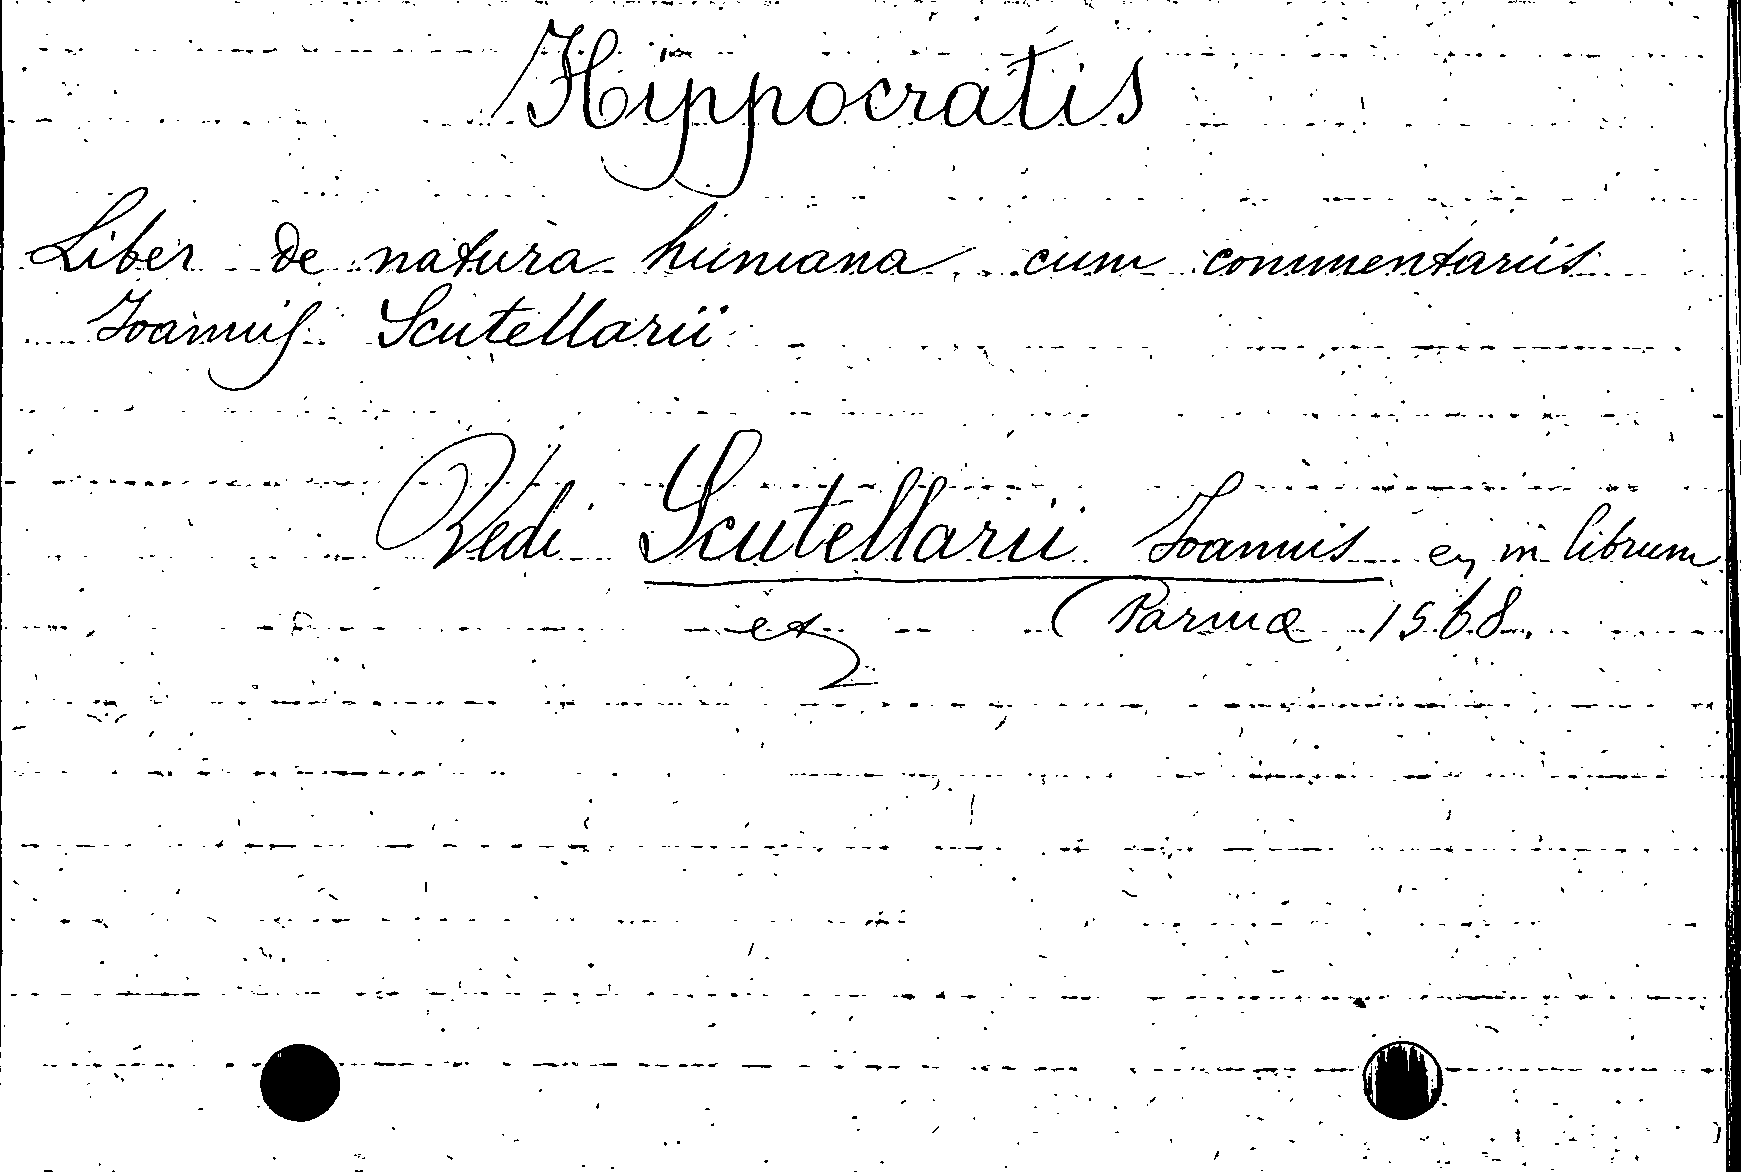 Hippocratis
Liber de natura humana, cum commentariis
Joannis Scutellarii
Vedi Scutellarii Joannis in librum
etz Parmæ 1568.